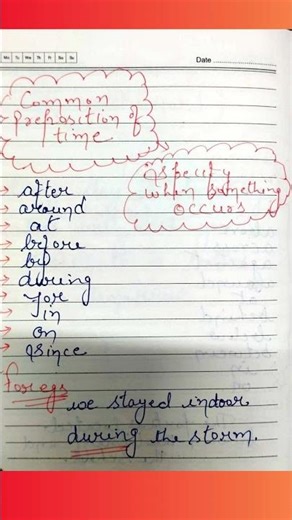 Mo Tu We Th Fr Sa Su
Date
Common
preposition of
time
specify
when something
occurs
→ after
→ around
→ at
→ before
→ by
→ during
→ for
→ in
→ on
→ since
For egs
we stayed indoor
during the storm.